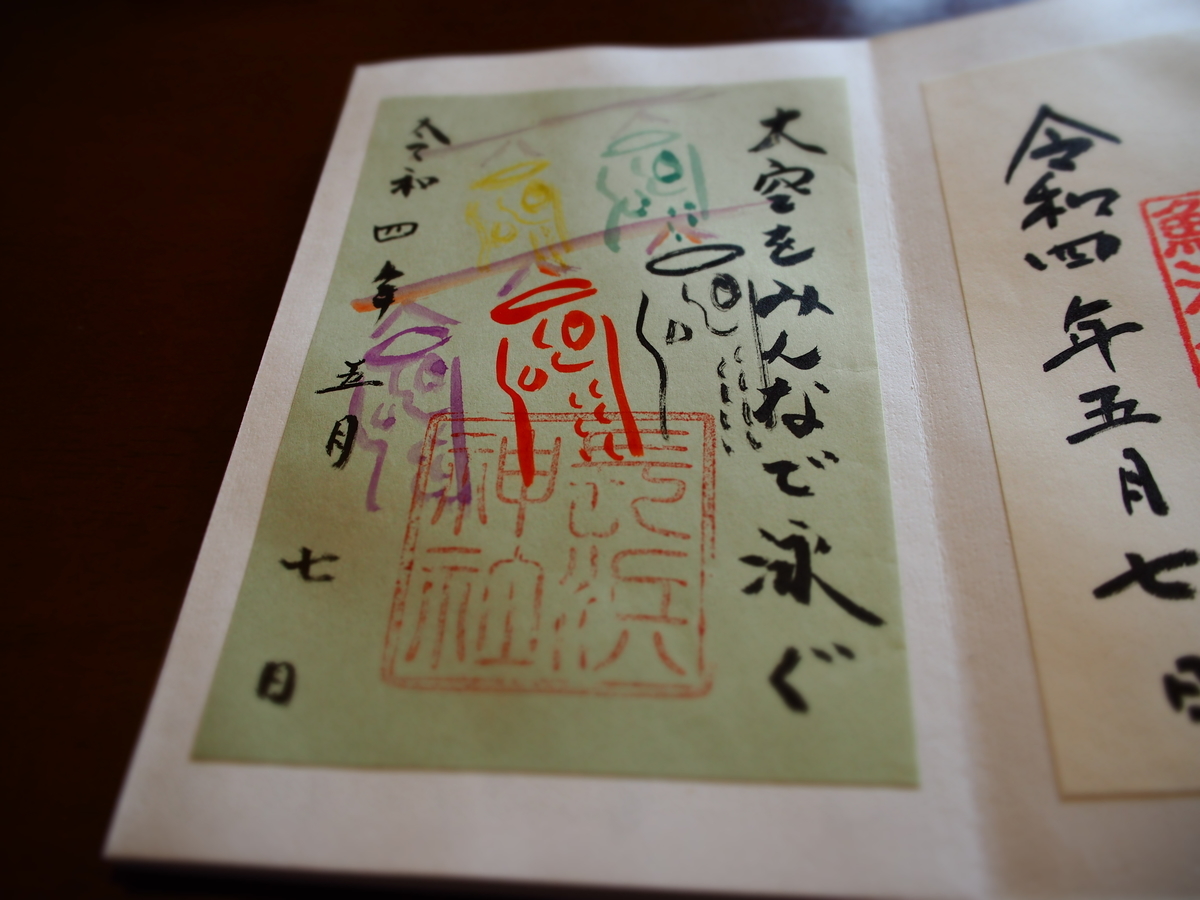 令和四年五月七日
大空をみんなで泳ぐ
長浜
神社
令和四年五月七日